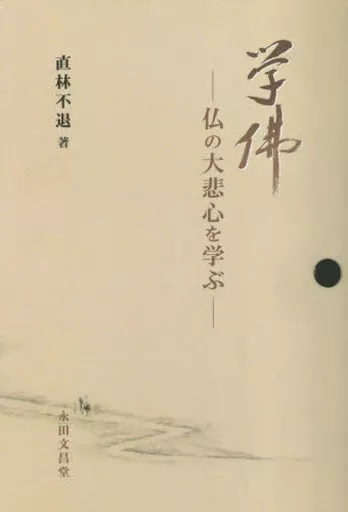 学佛
―仏の大悲心を学ぶ―
直林不退 著
永田文昌堂